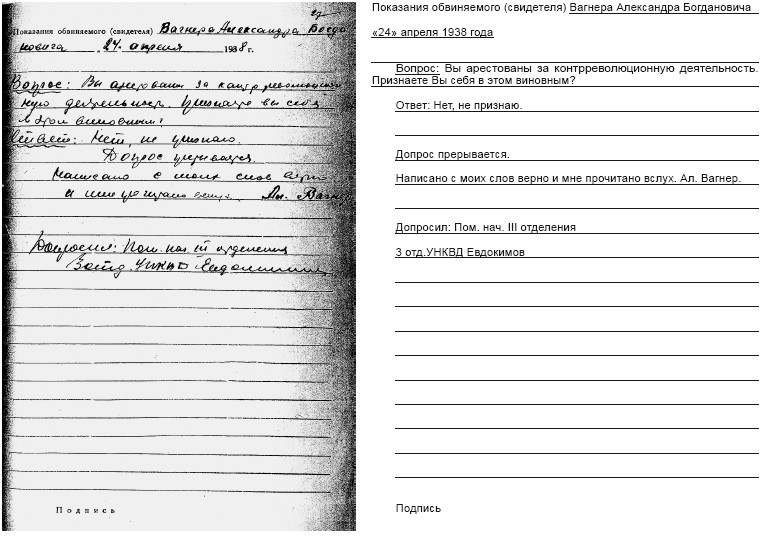 27
Показания обвиняемого (свидетеля) Вагнера Александра Богда
новича „24. апреля 1938 г.
Вопрос: Вы арестованы за контрреволюцион
ную деятельность. Признаете вы себя
в этом виновным?
Ответ: Нет, не признаю.
Допрос прерывается.
Написано с моих слов верно
и мне прочитано вслух. Ал. Вагнер
Допросил: Пом. нач. III отделения
3 отд. УНКВД Евдокимов
Подпись
Показания обвиняемого (свидетеля) Вагнера Александра Богдановича
«24» апреля 1938 года
Вопрос: Вы арестованы за контрреволюционную деятельность.
Признаете Вы себя в этом виновным?
Ответ: Нет, не признаю.
Допрос прерывается.
Написано с моих слов верно и мне прочитано вслух. Ал. Вагнер.
Допросил: Пом. нач. III отделения
3 отд.УНКВД Евдокимов
Подпись